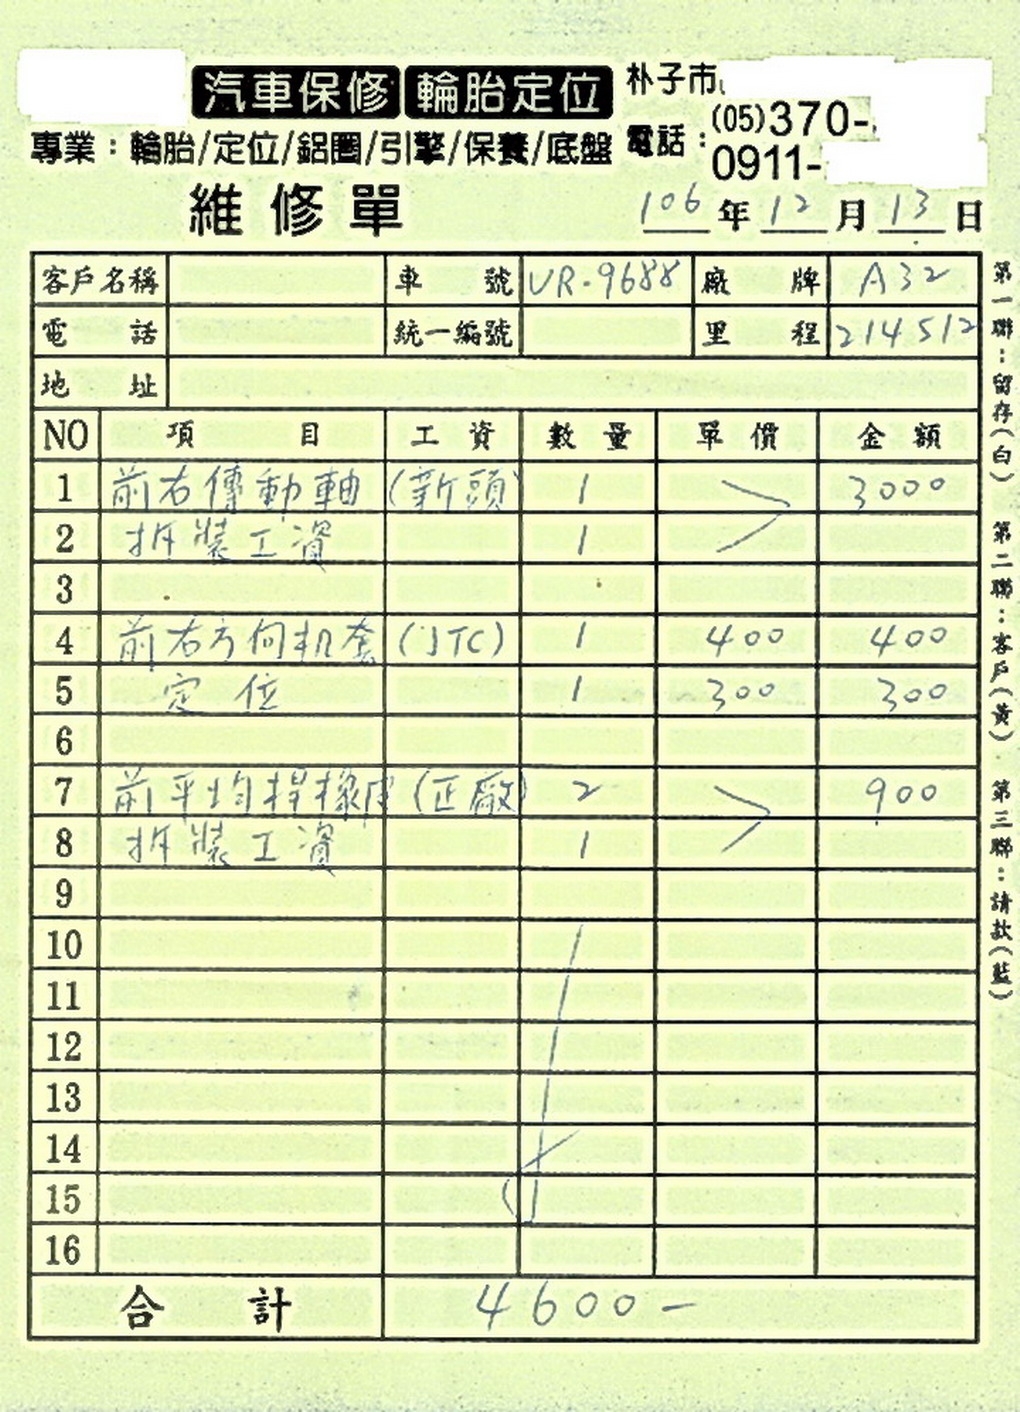 汽車保修 輪胎定位 朴子市
專業：輪胎/定位/鋁圈/引擎/保養/底盤 電話：(05)370-
0911-
維修單 106年12月13日
客戶名稱 車號 UR-9688 廠牌 A32
電話 統一編號 里程 214512
地址
NO 項目 工資 數量 單價 金額
1 前右傳動軸 (新頭) 1 3000
2 拆裝工資 1
3
4 前右方向机套 (JTC) 1 400 400
5 定位 1 300 300
6
7 前平均桿橡皮 (正廠) 2 900
8 拆裝工資 1
9
10
11
12
13
14
15
16
合計 4600-
第一聯：留存(白) 第二聯：客戶(黃) 第三聯：請款(藍)